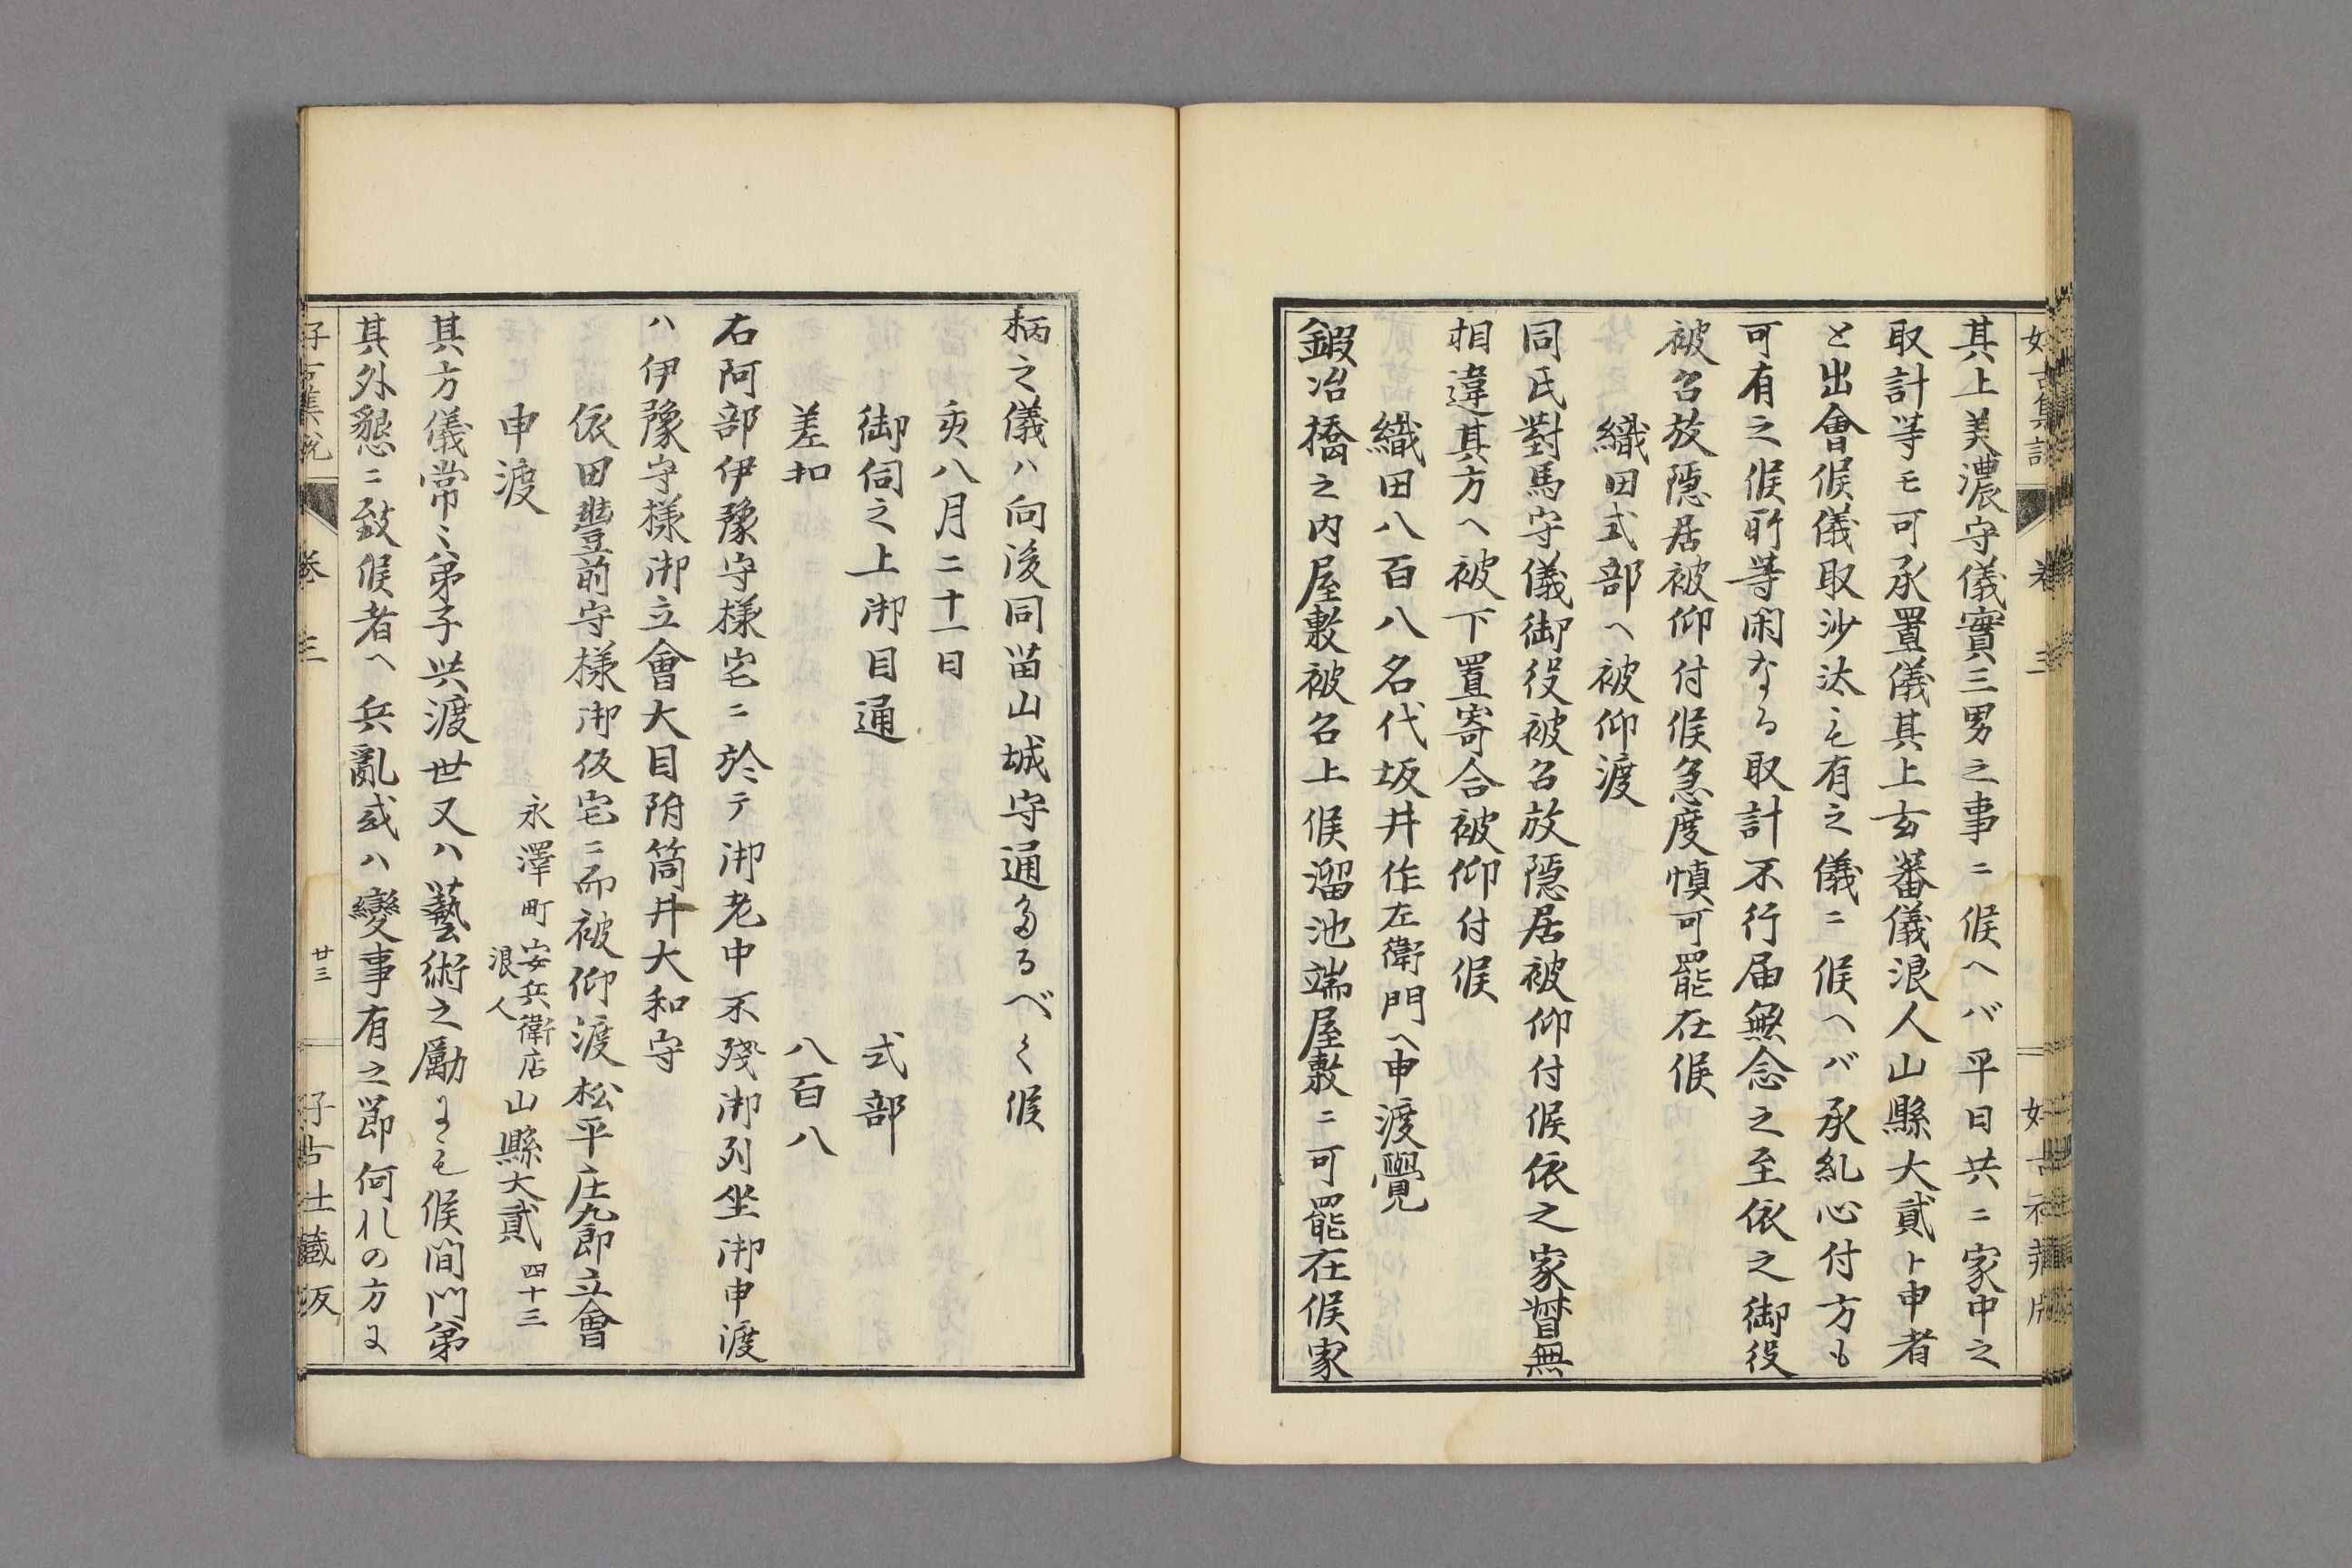 其上美濃守儀實三男之事ニ候ヘバ平日共ニ家中之
取計等モ可承置儀其上玄蕃儀浪人山縣大貳ト申者
と出會候儀取沙汰も有之儀ニ候ヘバ承糺心付方も
可有之候所等閑なる取計不行届無念之至依之御役
被召放隠居被仰付候急度慎可罷在候
織田式部ヘ被仰渡
同氏對馬守儀御役被召放隠居被仰付候依之家督無
相違其方ヘ被下置寄合被仰付候
織田八百八名代坂井作左衛門ヘ申渡覺
鍜冶橋之内屋敷被召上候溜池端屋敷ニ可罷在候家
柄之儀ハ向後同苗山城守通たるべく候
亥八月二十一日
御伺之上御目通 式部
差扣 八百八
右阿部伊豫守様宅ニ於テ御老中不殘御列坐御申渡
ハ伊豫守様御立會大目附筒井大和守
依田豐前守様御役宅ニ而被仰渡松平庄九郎立會
申渡 永澤町安兵衛店浪人 山縣大貳 四十三
其方儀常々弟子共渡世又ハ藝術之勵にも候間門弟
其外懇ニ致候者ヘ兵亂或ハ變事有之節何れの方に
好古集説 卷三 廿三 好古社藏版